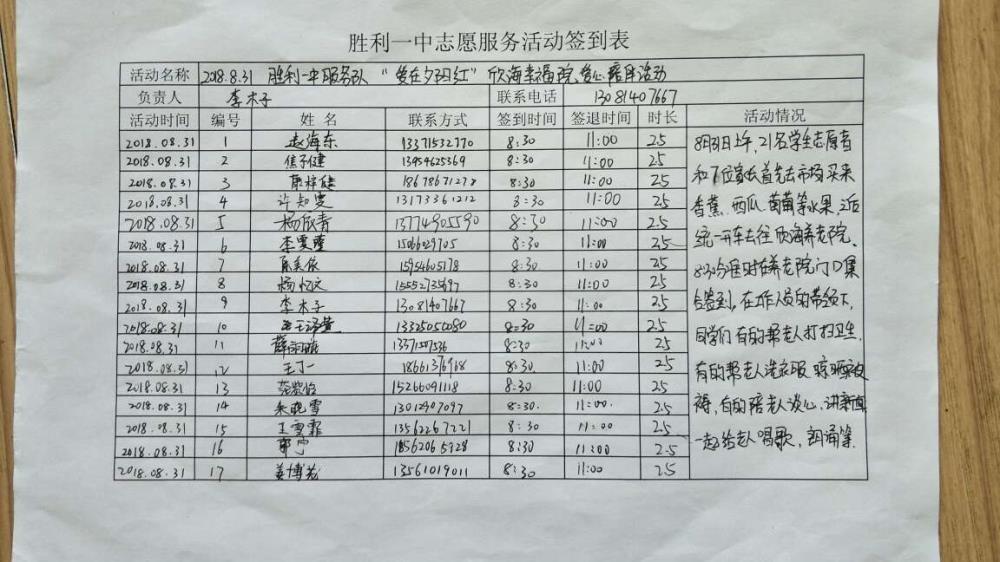 胜利一中志愿服务活动签到表
活动名称 2018.8.31 胜利一中服务队 “爱在夕阳红” 欣海幸福院 爱心陪伴活动
负责人 李木子 联系电话 13081407667
活动时间 编号 姓名 联系方式 签到时间 签退时间 时长 活动情况
2018.08.31 1 赵海东 13371532770 8:30 11:00 2.5
2018.08.31 2 焦子健 13954625369 8:30 11:00 2.5
2018.08.31 3 18678671278 8:30 11:00 2.5
2018.08.31 4 许知雯 13173361212 8:30 11:00 2.5
2018.08.31 5 杨欣青 13774905590 8:30 11:00 2.5
2018.08.31 6 李雯 8:30 11:00 2.5
2018.08.31 7 15954605178 8:30 11:00 2.5
2018.08.31 8 杨忆元 15552735697 8:30 11:00 2.5
2018.08.31 9 李木子 13081407667 8:30 11:00 2.5
2018.08.31 10 13325050080 8:30 11:00 2.5
2018.08.31 11 8:30 11:00 2.5
2018.08.31 12 王丁一 18661376968 8:30 11:00 2.5
2018.08.31 13 15266091118 8:30 11:00 2.5
2018.08.31 14 朱晓雪 13012907097 8:30 11:00 2.5
2018.08.31 15 王雲霏 13562267221 8:30 11:00 2.5
2018.08.31 16 郭宁 18562065928 8:30 11:00 2.5
2018.08.31 17 姜博 13561019011 8:30 11:00 2.5
8月31日上午,21名学生志愿者
和7位家长首先去市场买来
香蕉、西瓜、葡萄等水果,之后
统一开车去往欣海养老院.
8:30分准时在养老院门口集
合签到,在工作人员的带领下,
同学们有的帮老人打扫卫生.
有的帮老人洗衣服 晾晒被
褥,有的陪老人谈心、讲新闻
一起给老人唱歌、朗诵等.